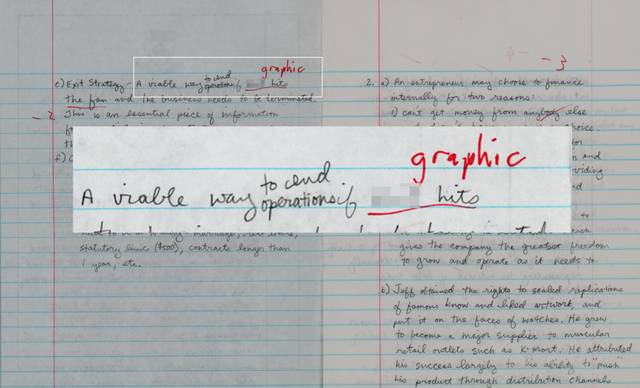 graphic
c) Exit Strategy - A viable way to end operations if hits
the fan and the business needs to be terminated.
-2 This is an essential piece of information
graphic
A viable way to end operations if hits
statutory limit ($500), contracts longer than
1 year, etc.
-3
2. a) An entrepreneur may choose to finance
internally for two reasons:
1) can't get money from anybody else
gives the company the greatest freedom
to grow and operate as it needs to.
b) Jeff obtained the rights to sealed replications
of famous know and liked artwork, and
put it on the faces of watches. He grew
to become a major supplier to
retail outlets such as K-mart. He attributed
his success largely to his ability to "push"
his product through distribution channels